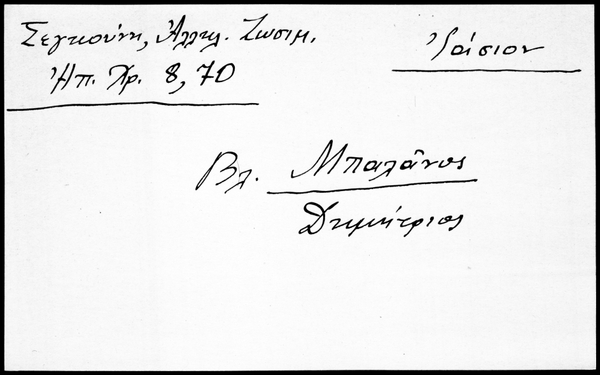 Σεγκούνη, Ἀλληλ. Ζωσιμ.
Ἠπ. Χρ. 8, 70
Ἰάσιον
Βλ. Μπαλᾶνος
Δημήτριος